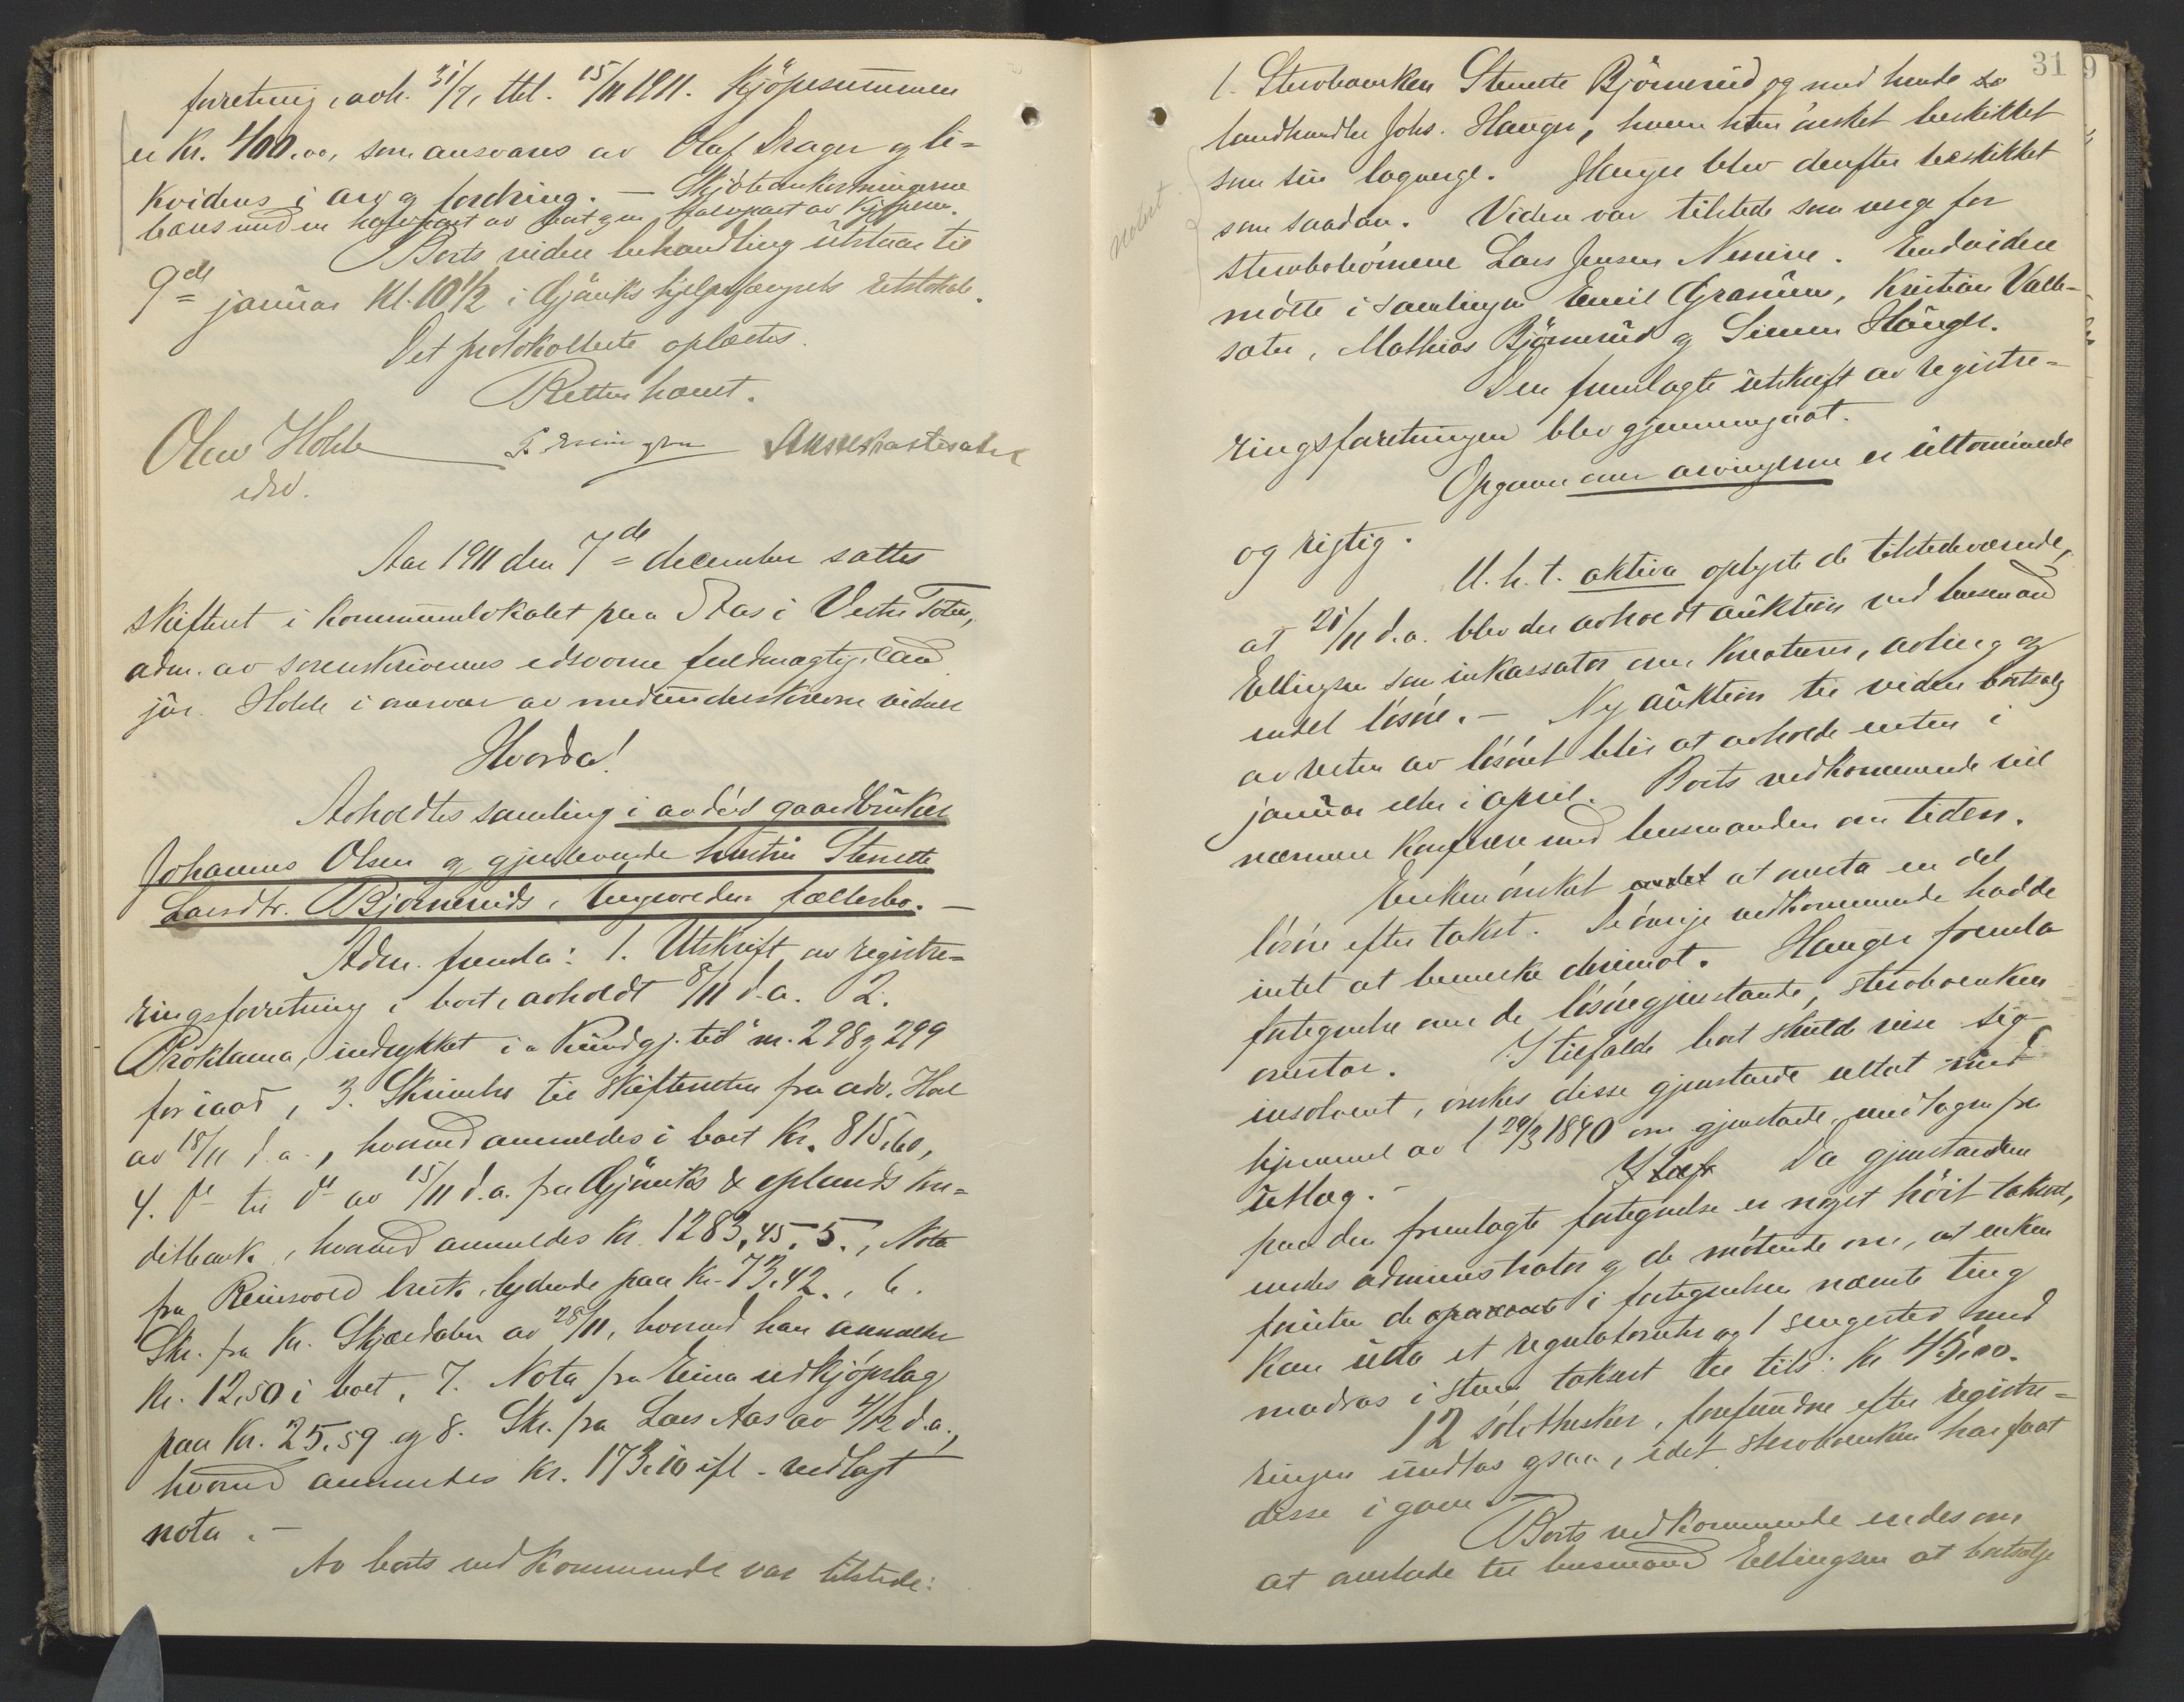 forretning, avh. 31/7, thl. 15/11 1911. Kjöpesummen
er Kr. 400.00, som ansvares av Olaf Drager og li-
kvideres i arv og fordring. — Skjöteomkostningerne
bæres med en halvpart av boet og en halvpart av kjöperen.
Boets videre behandling utstaar til
9de januar Kl. 10 1/2 i Gjöviks hjelpefængsels retslokale.
Det protokollerte oplæstes.
Retten hævet.
Olav Hohle
edsv.
Aar 1911 den 7de december sattes
skifteret i kommunelokalet paa Raas i Vestre Toten,
adm. av sorenskriverens edsvorne fuldmægtig, cand.
jur. Hohle i overvær av medunderskrevne vidner
Hvorda!
Avholdtes samling i avdöd gaardbruker
Johannes Olsen og gjenlevende hustru Stenette
Larsdtr. Björneruds, fællesbo. —
Adm. fremla: 1. Utskrift av registre-
ringsforretning i boet, avholdt 8/11 d.a. 2.
Proklama, indrykket i "Kundgj. tid" nr. 298 og 299
for iaar, 3. Skrivelse til skifteretten fra adv. Hoel
av 18/11 d.a., hvorved anmeldes i boet Kr. 815,60,
4. do til do av 15/11 d.a. fra Gjöviks & oplands kre-
ditbank, hvorved anmeldes Kr. 1283,45, 5., Nota
fra Reinsvold bruk, lydende paa Kr. 73,42., 6.
Skr. fra Kr. Skjærdalen av 28/11, hvorved han anmelder
Kr. 12,50 i boet, 7. Nota fra Eina indkjöpslag
paa Kr. 25,59 og 8. Skr. fra Lars Aas av 4/12 d.a.,
hvorved anmeldes Kr. 173,10 ifl. vedlagt
nota. —
Av boets vedkommende var tilstede:
31
9
1. Stervboenken Stenette Björnerud og med hende
landhandler Johs. Hauger, hvem hun önsket beskikket
som sin lagverge. Hauger blev derefter beskikket
som saadan. Videre var tilstede som verge for
noteret
stervbobörnene Lars Jensen. Endvidere
mötte i samlingen Emil Granum, Kristian Valle-
sæter, Mathias Björnerud og Simen Hauger.
Den fremlagte utskrift av registre-
ringsforretningen blev gjennemgaat.
Opgaven om arvingerne er uttömmende
og rigtig.
M.h.t. aktiva oplyste de tilstedeværende,
at 21/11 d.a. blev der avholdt auktion ved lensmand
Ellingsen som inkassator over kreaturer, avling og
endel lösöre. — Ny auktion til videre bortsalg
av resten av lösöret blir at avholde enten i
januar eller i april. Boets vedkommende vil
nærmere konferere med lensmanden om tiden.
Enken önsket at overta en del
lösöre efter takst. De övrige vedkommende hadde
intet at bemerke derimot. Hauger fremla
fortegnelse over de lösöregjenstande, stervboenken
overtar. I tilfælde boet skulde vise sig
insolvent, önskes disse gjenstande uttat med
hjemmel av l 29/3 1890 om gjenstande, undtagne fra
utlæg. — Da gjenstandene
paa den fremlagte fortegnelse er noget höit takseret,
enedes administrator og de mötende om, at enken
foruten de i fortegnelsen nævnte ting
kan utta et regulatorur og 1 sengested med
madras i stuen takseret til tils: Kr 45,00.
12 sölvtheskeer, forefundne efter registre-
ringen undtas ogsaa, idet stervboenken har faat
disse i gave. —
Boets vedkommende enedes om
at overlade til lensmand Ellingsen at bortsælge